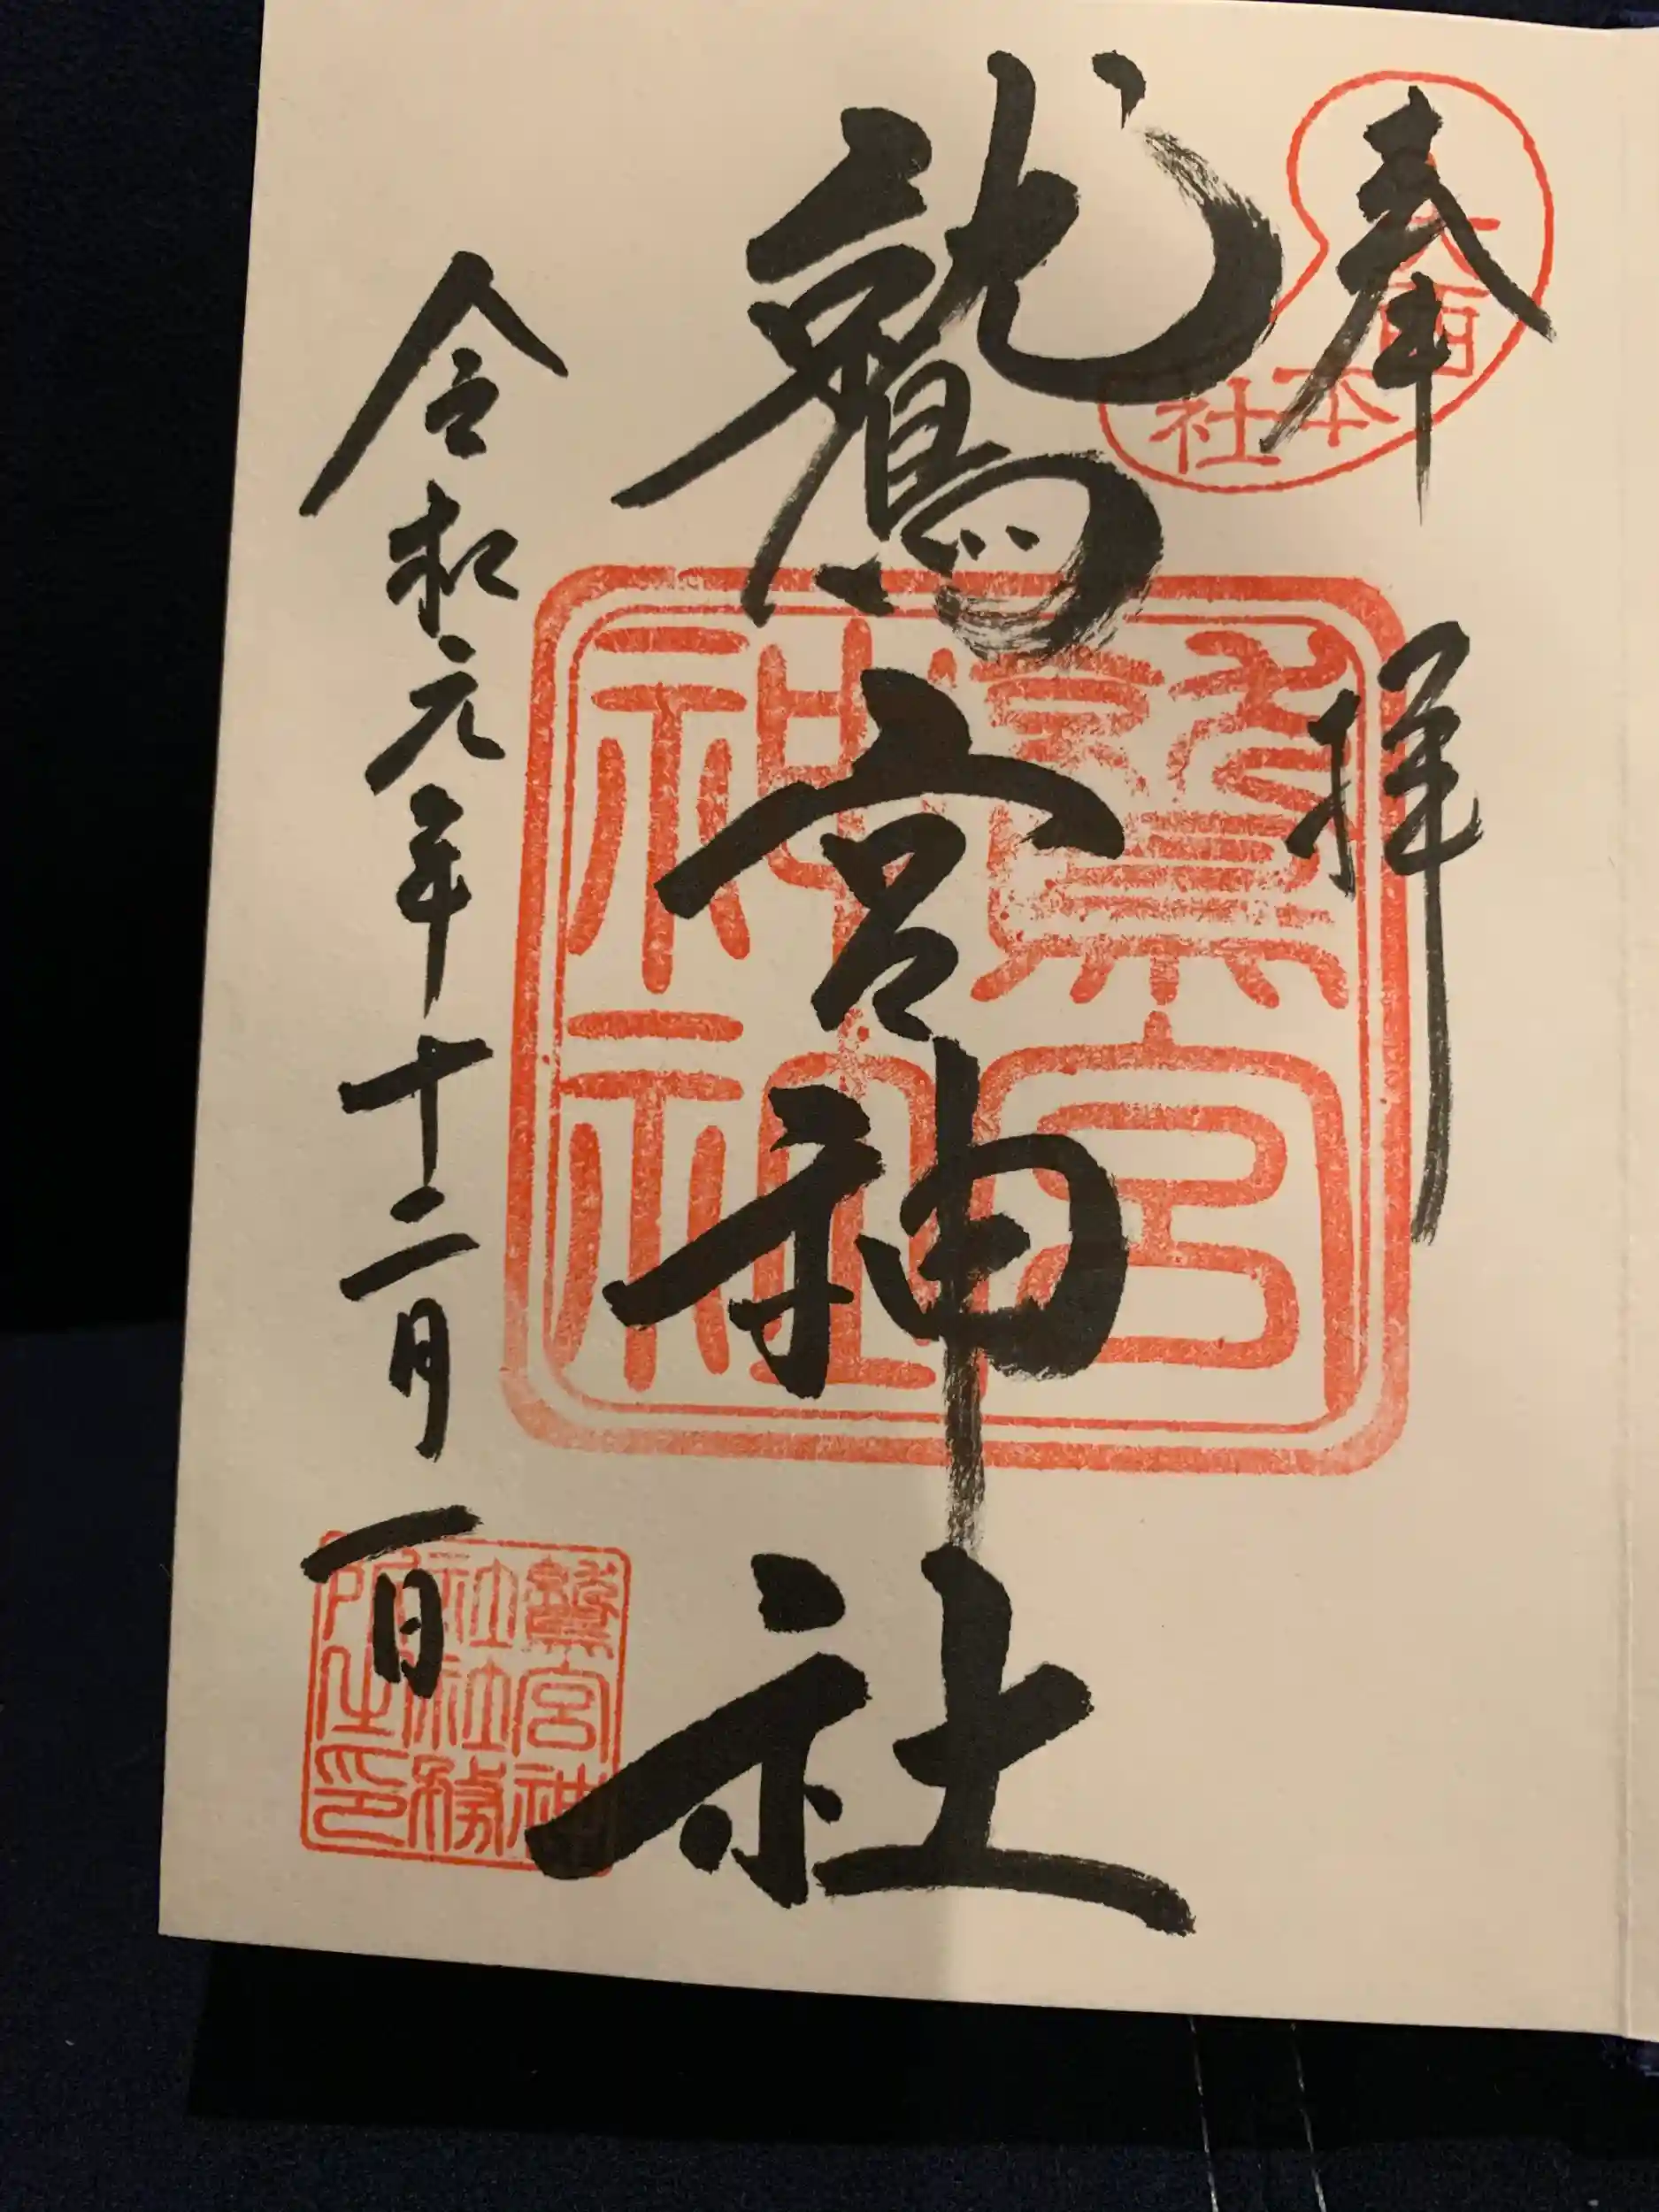 奉拝
大酉本社
鷲宮神社
鷲宮神社
令和元年十二月一日
鷲宮神社社務所之印